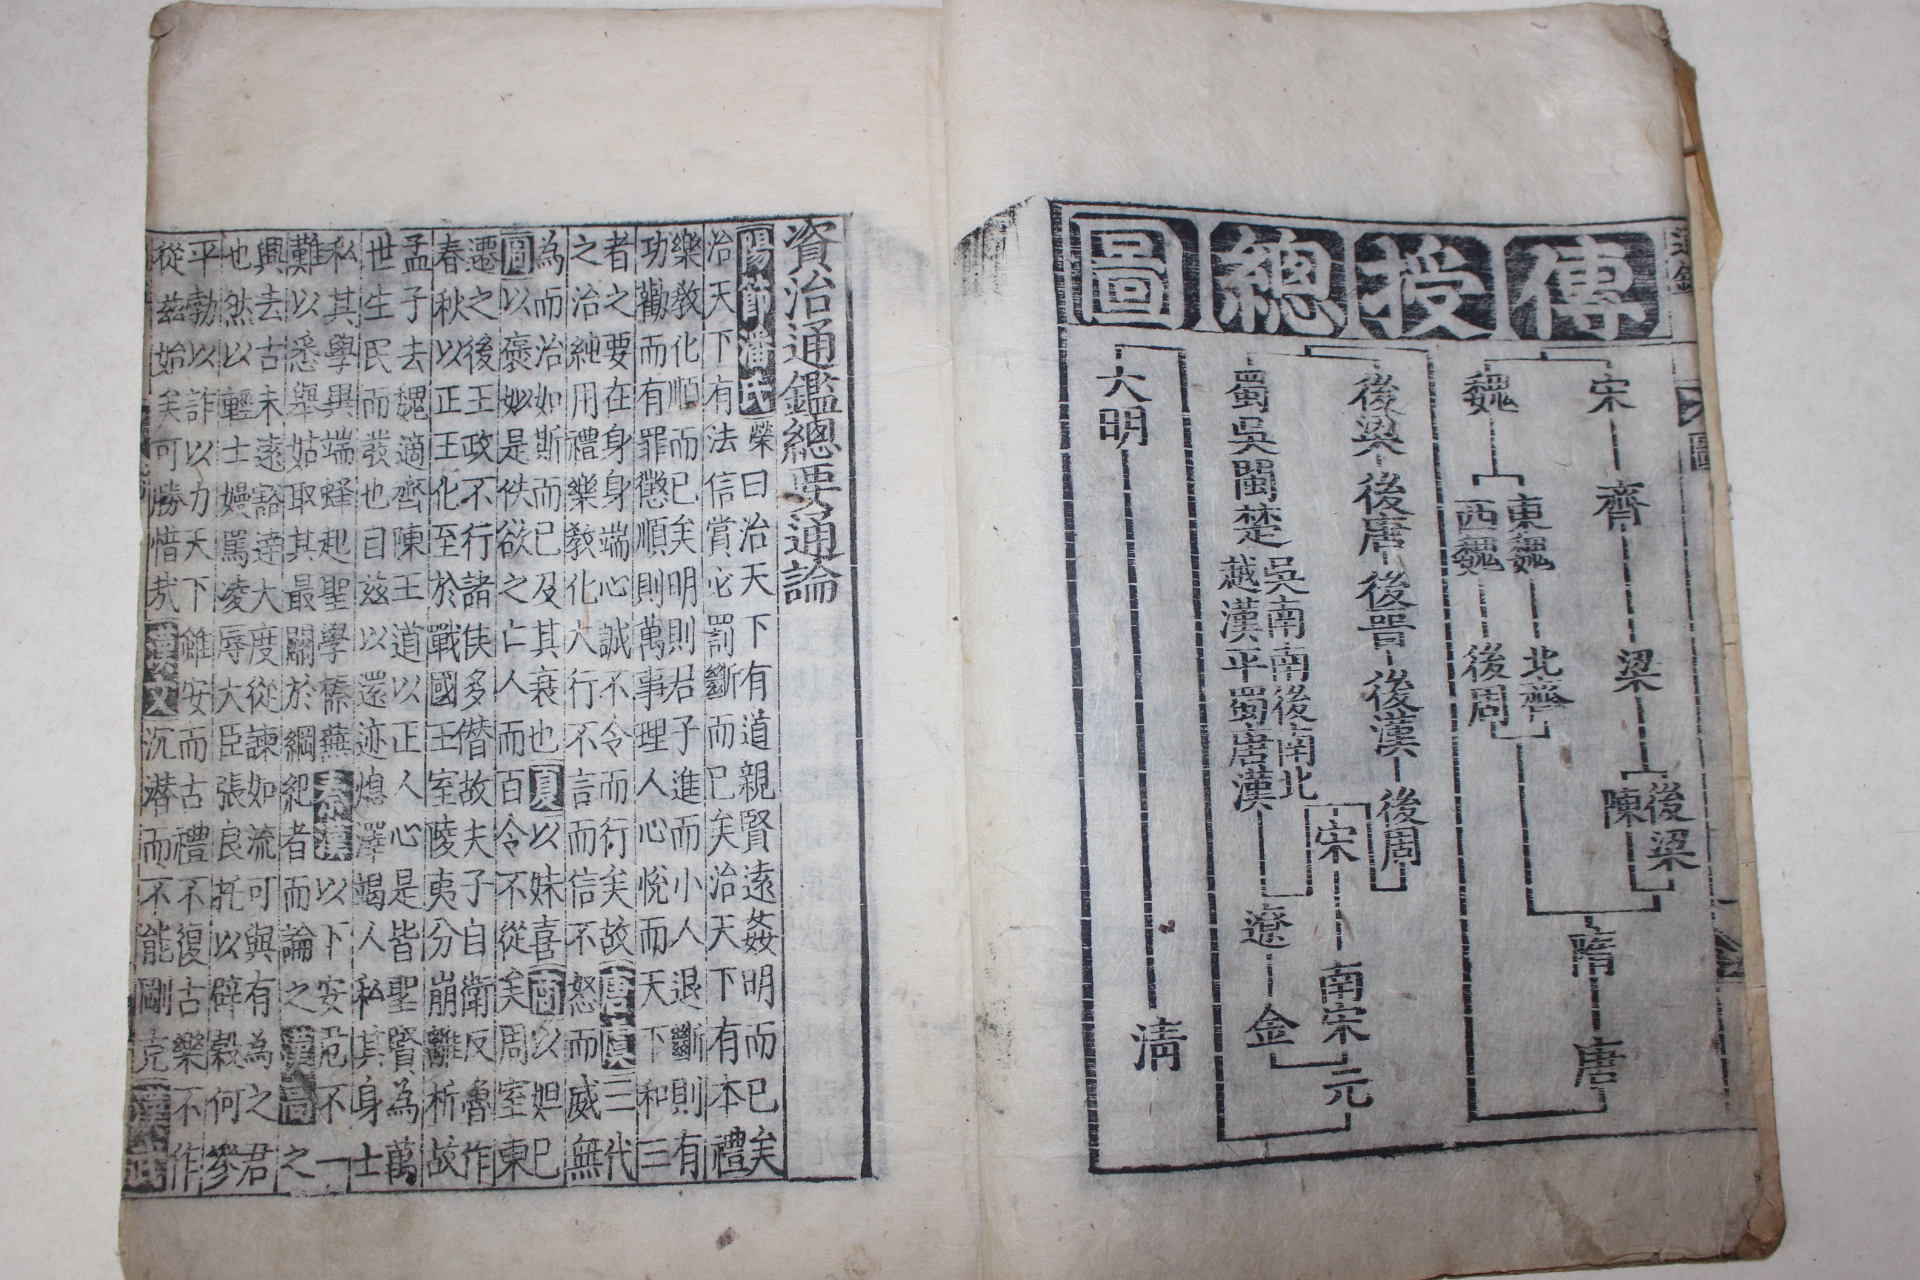 傳授總圖
宋 齊 梁 後梁 陳
隋 唐
魏 東魏 北齊
西魏 後周
後梁 後唐 後晉 後漢 後周
宋 南宋 元
蜀吳閩楚 吳南南後南北
越漢平蜀唐漢
遼 金
大明 淸
資治通鑑總要通論
陽節潘氏榮曰治天下有道親賢遠姦明而已矣
治天下有法信賞必罰斷而已矣治天下有本禮
樂敎化順而已矣明則君子進而小人退斷則有
功勸而有罪懲順則萬事理人心悅而天下和三
者之要在身身端心誠不令而行矣故唐虞三代
之治純用禮樂敎化大行不言而信不怒而威無
為而治如斯而已及其衰也夏以妹喜商以妲已
周以褒姒是佚欲之亡人而百令不從矣周室東
遷之後王政不行諸侯多僭故夫子自衛反魯作
春秋以正王化至於戰國王室陵夷分崩離析故
孟子去魏適齊陳王道以正人心是皆聖賢為萬
世生民而發也自玆以還迹熄澤竭人私其身士
私其學異端蜂起聖學榛蕪秦漢以下安危不一
難以悉舉姑取其最關於綱紀者而論之漢高之
興去古未遠豁達大度從諫如流可與有為之君
也然以輕士嫚罵凌辱大臣張良託以辟穀何參
平勃以詐以力天下雖安而古禮不復古樂不作
從玆始矣可勝惜哉漢文沉潛而不能剛克